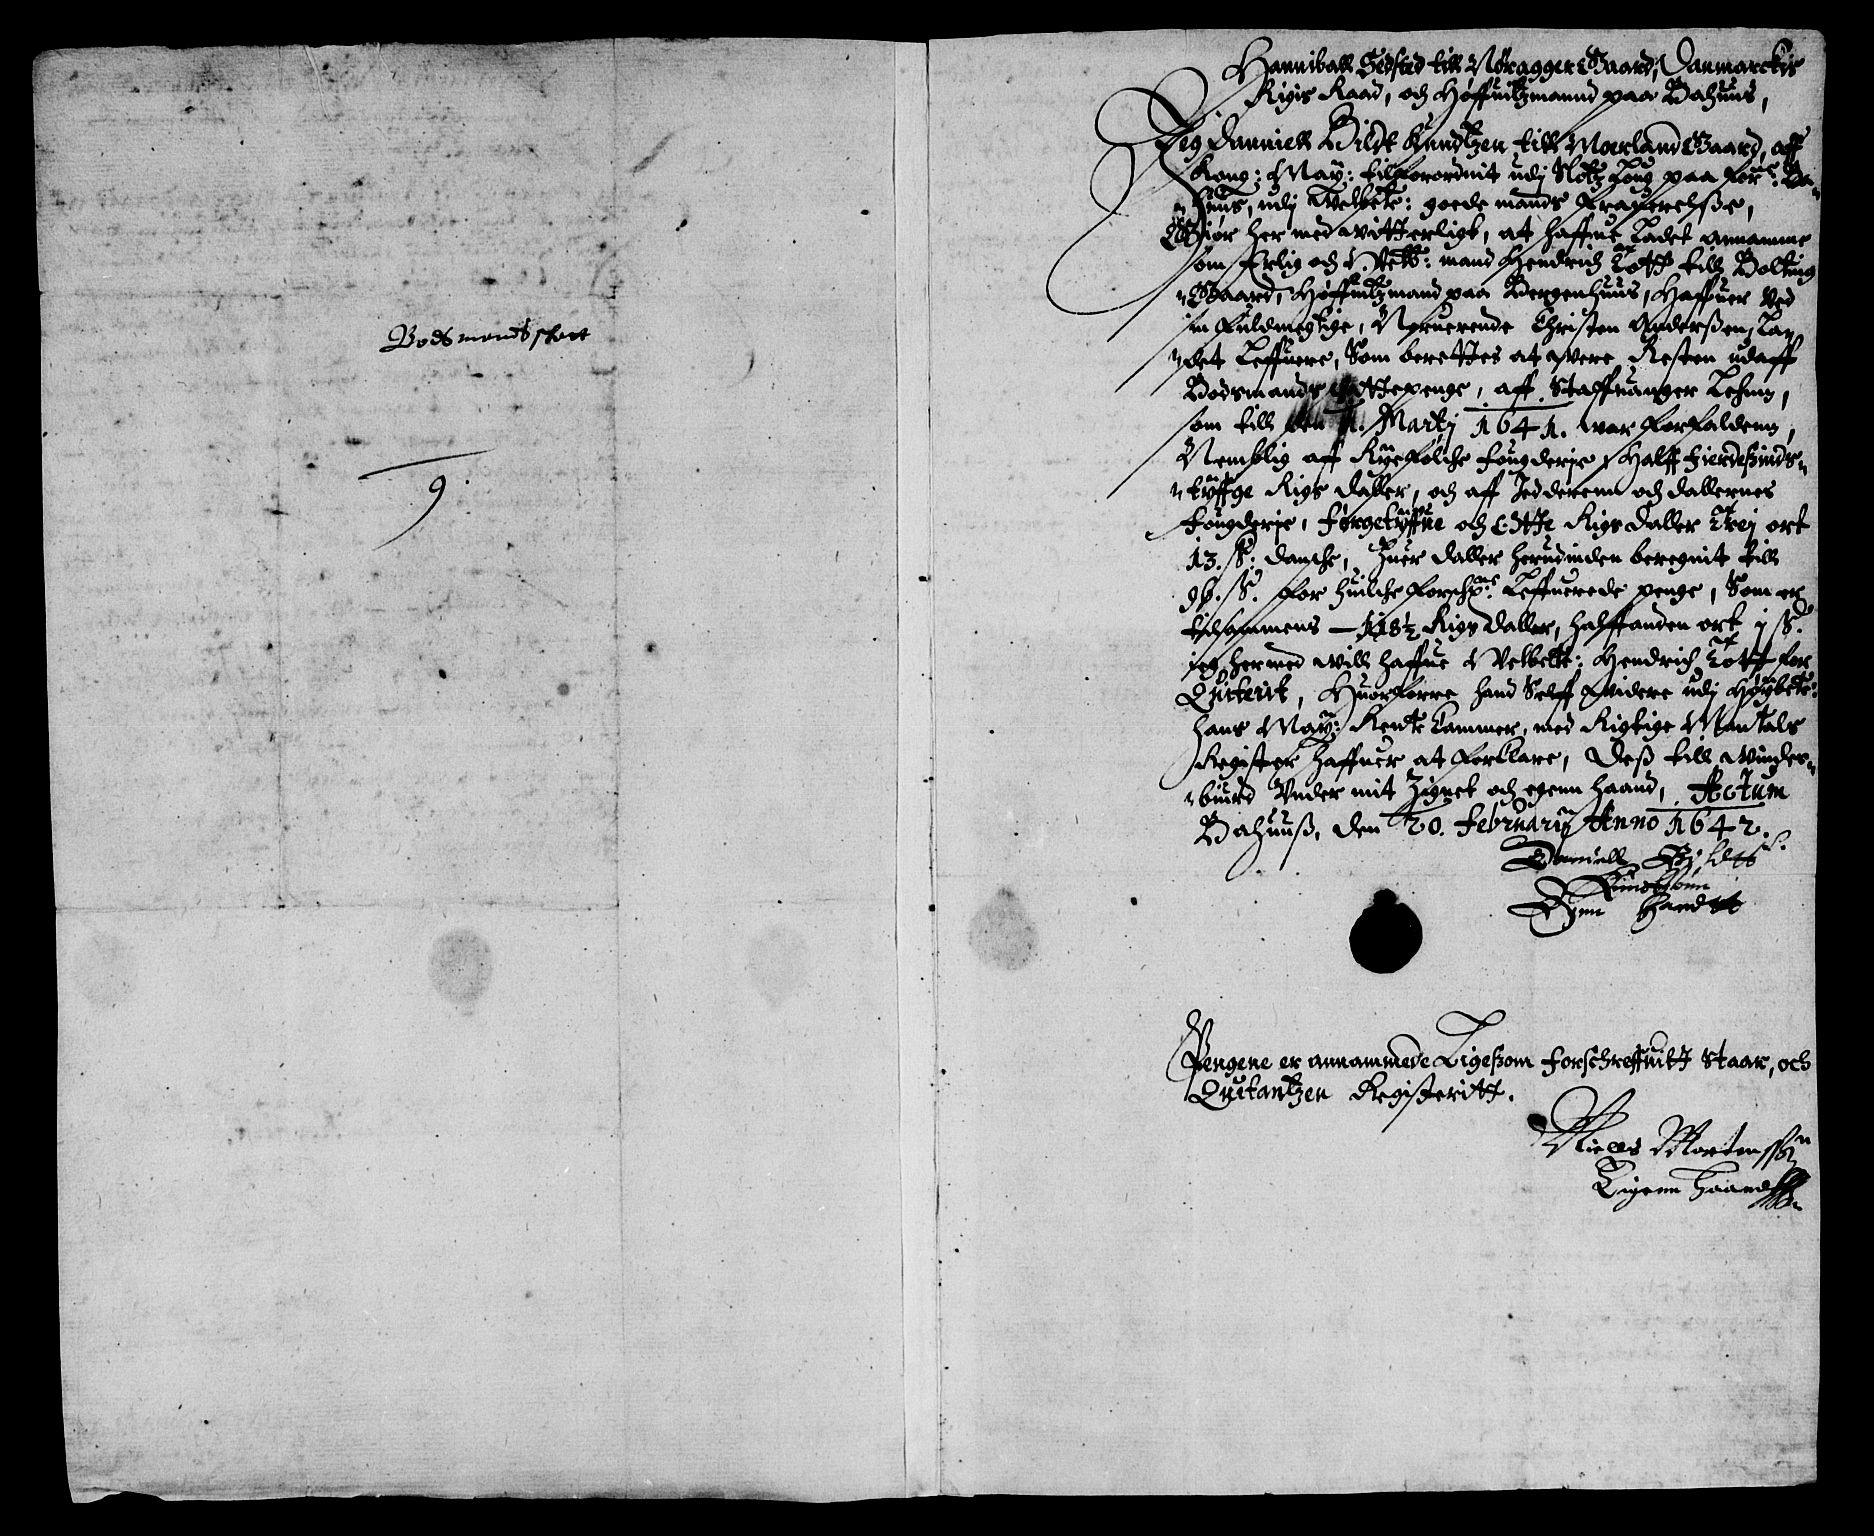 Bodsmands skatt
9.
Hanniball Sehsted till Nøragger Gaard, Danmarckis
Rigis Raad, och Høffuitzmannd paa Bahuus,
Jeg Danniell Bildt Knudtzen till Morland Gaard, aff
Kong: May: tilforordnit udj Slotz Loug paa for: Ba-
huus, udj Welbete: goede mands fraverelsse,
Giør her med witterligt, at haffue Ladet annamme
som Erlig och Welb: mand Hendrich Tott till Bolting
Gaard, Høffuitzmand paa Bergenhuus, haffuer Ved
sin fuldmegtige, Neruerende Christen Anderssen, La-
det Leffuere, Som berettes at were Resten udaff
Bodsmands skattepenge, aff Staffuanger Lehnn,
som till den 1. Martj 1641. war forfaldenn,
Nemblig aff Ryefølche fougderje, Halff fierdesinds-
tyffge Rigs daller, och aff Jedderenn och dallernes
fougderje, førgetyffue och Otte Rigs daller Trej ort
13. sk: danske, huer daller herudinden beregnit till
96. sk. for huilche forschr: Leffuerede penge, Som er
tilsammens — 118½ Rigs daller, halffanden ort j sk.
jeg hermed will haffue Welbete: Hendrich Tott for
Quiterit, Huorforre hand Selff widere udj Høybete:
hans May: Rente Cammer, med Rigtige Mantals
Register haffuer at forklare, Dess till winder-
biurd Vnder mit Zignet och egenn haand, Actum
Bahuuss, den 20. februarij Anno 1642.
Daniell Byldt
Knudssønn
Egnn Handtt
Pengene er annammede Ligessom forschreffuitt staar, och
Quitantzen Registeritt.
Niels Mortenssen
Eigenn haand